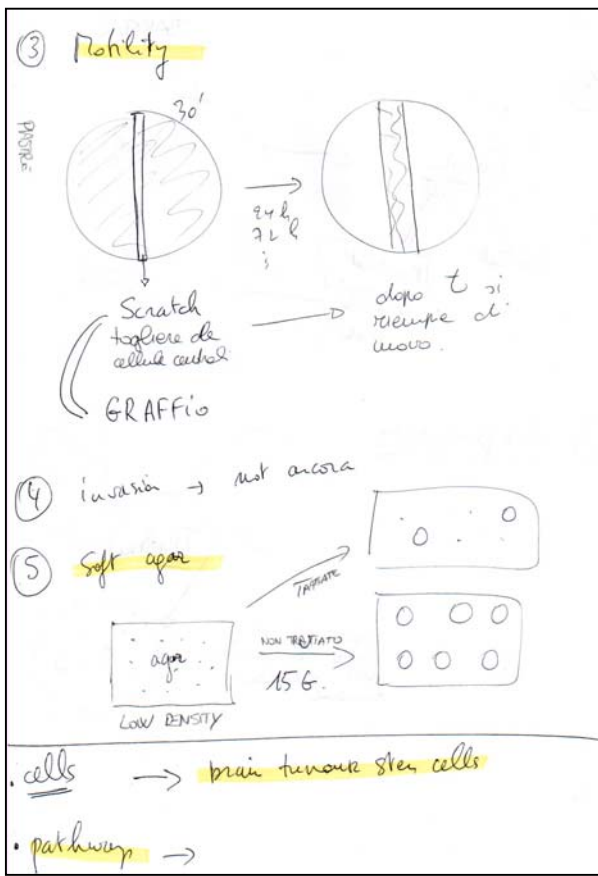 ③ Motility
30'
PIASTRE
24 h
72 h
Scratch
togliere le
cellule centrali
GRAFFIO
dopo t si
riempe di
nuovo.
④ invasion → not ancora
⑤ Soft agar
TRATTATE
agar
NON TRATTATO
15 G.
LOW DENSITY
· cells → brain tumour stem cells
· pathway →